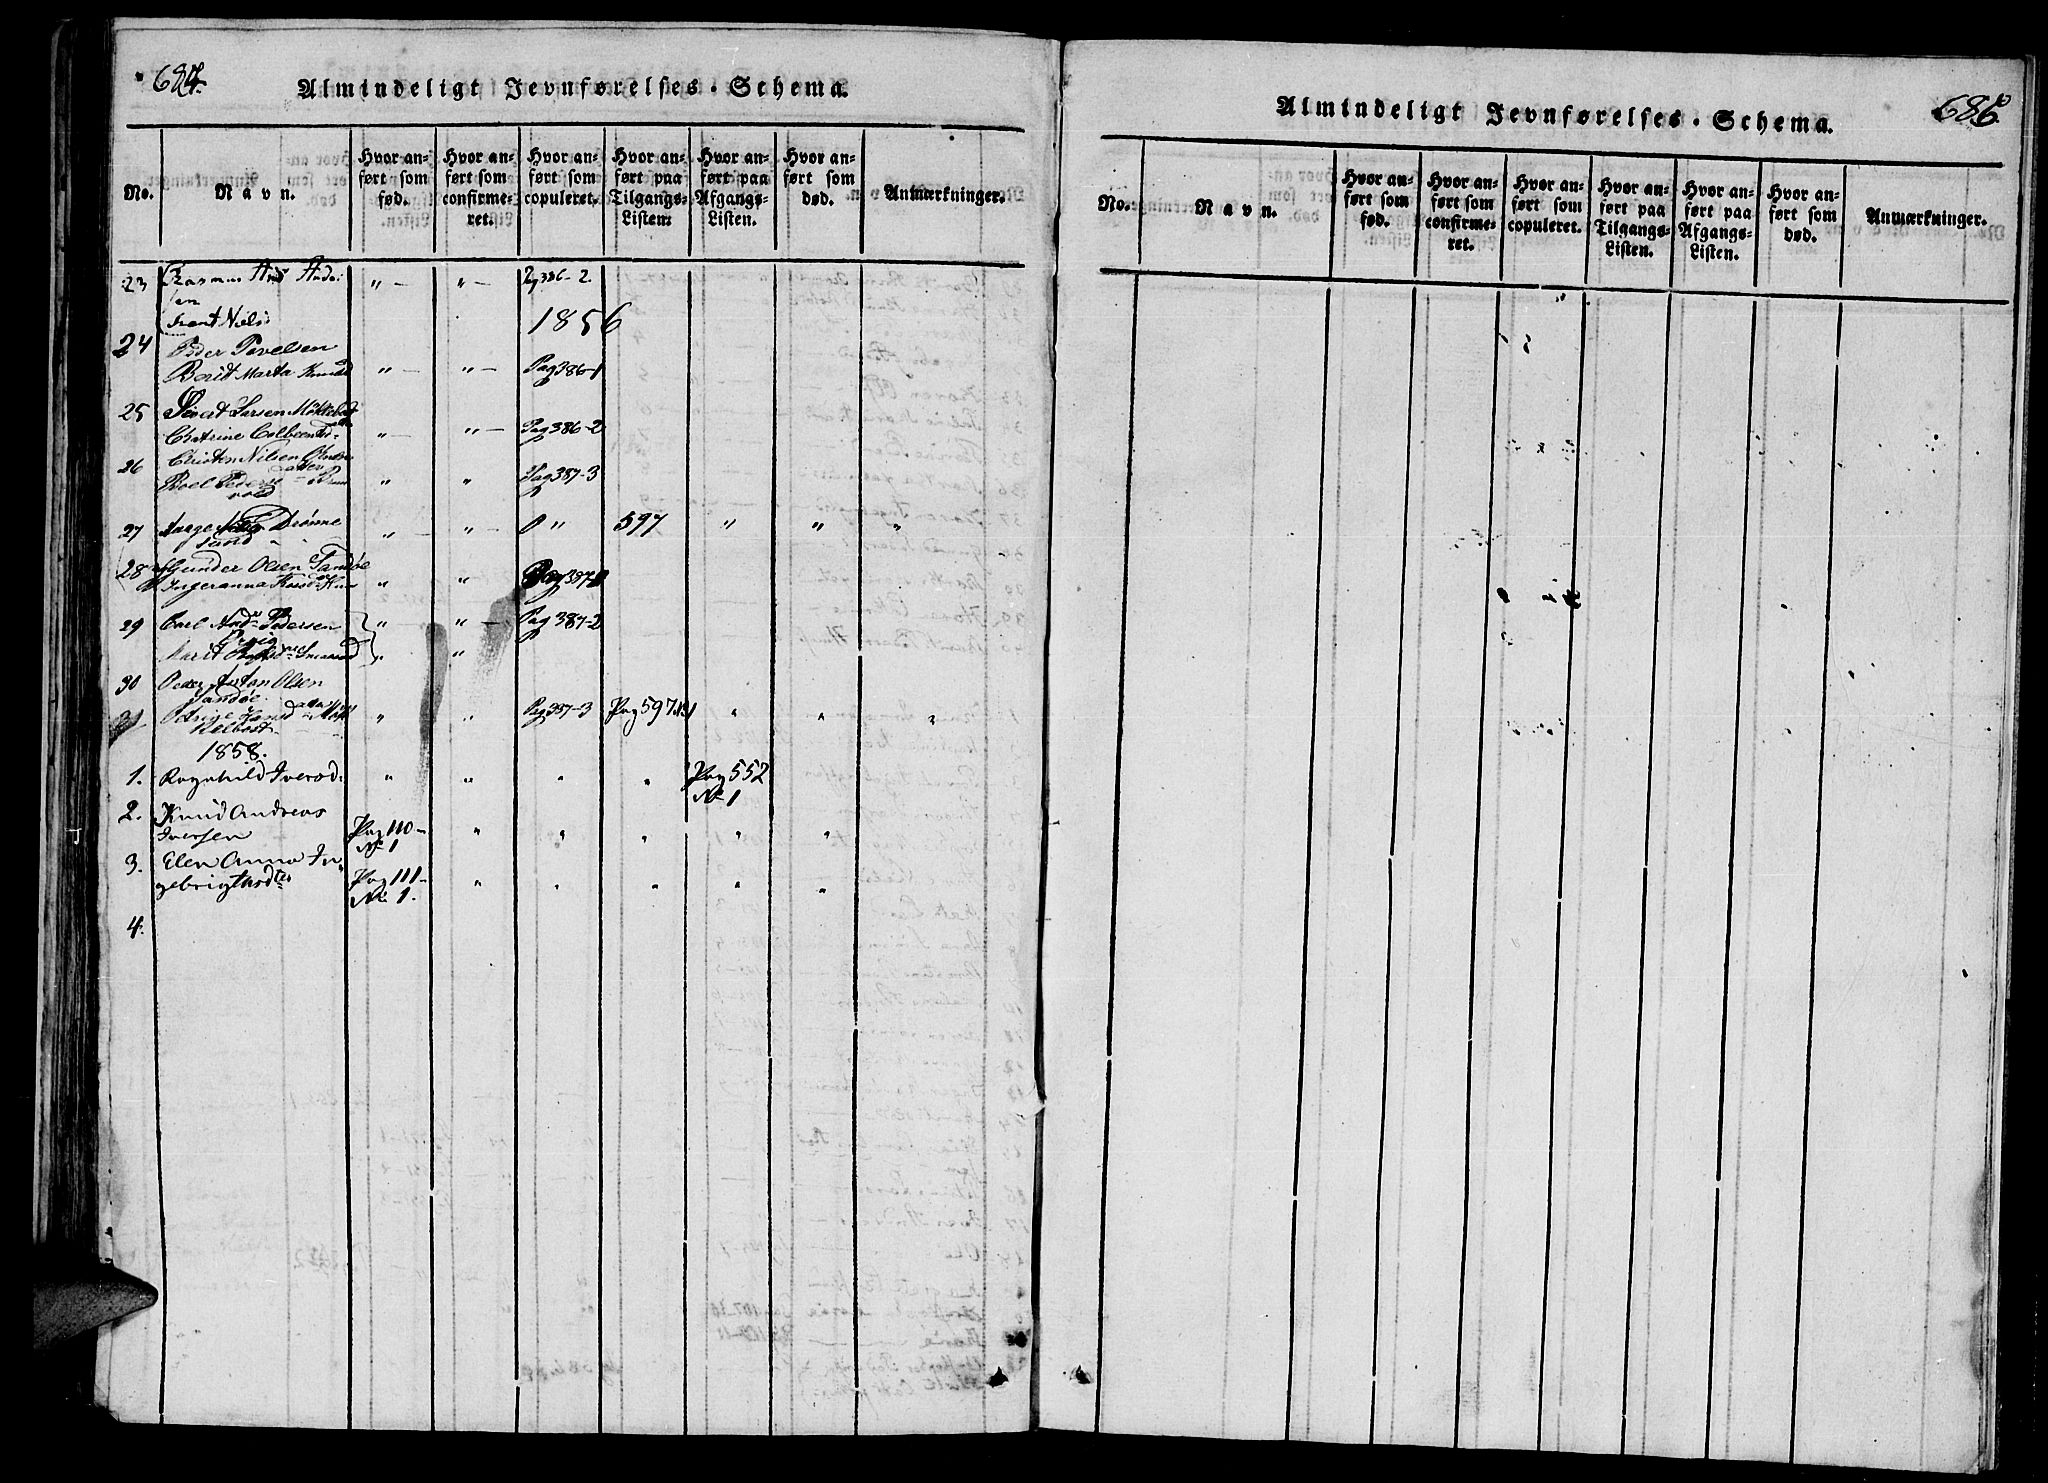 684.
Almindeligt Jevnførelses-Schema.
No.
Navn.
Hvor an-
ført som
fød.
Hvor an-
ført som
confirme-
ret.
Hvor an-
ført som
copuleret.
Hvor an-
ført paa
Tilgangs-
Listen.
Hvor an-
ført paa
Afgangs-
Listen.
Hvor an-
ført som
død.
Anmærkninger.
23 Rasmus And " — " — Pg 386-2.
sen
Niels
1856
24 Peder Povelsen
Berit Marta " — " — Pag 386-1
25 Sivert Larsen
Chatrine " — " — Pag 386-2
26 Christen Nilsen
Peders " " Pag 387-3
vold
27 Drönne " — " — 0 " 597 " " "
sund
28 Gunder Olsen Sandöe
Ingeranna " " Pag 387-
29 Carl And Pedersen " — " — Pag 387-2
Marit " "
30 Peder Anton Olsen
Sandöe
31 " " Pag 387-3 Pag 597 " " "
Kelbost
1858.
1. Ragnhild Iversd. " " " " Pag 552
No 1
2. Knud Andreas
Iversen Pag 110- " " " " "
No 1
3. Elen Anna In
gebrigtsdter Pag 111- " " " " "
No 1.
4.
Almindeligt Jevnførelses-Schema.
686
No.
Navn.
Hvor an-
ført som
fød.
Hvor an-
ført som
confirme-
ret.
Hvor an-
ført som
copuleret.
Hvor an-
ført paa
Tilgangs-
Listen.
Hvor an-
ført paa
Afgangs-
Listen.
Hvor an-
ført som
død.
Anmærkninger.